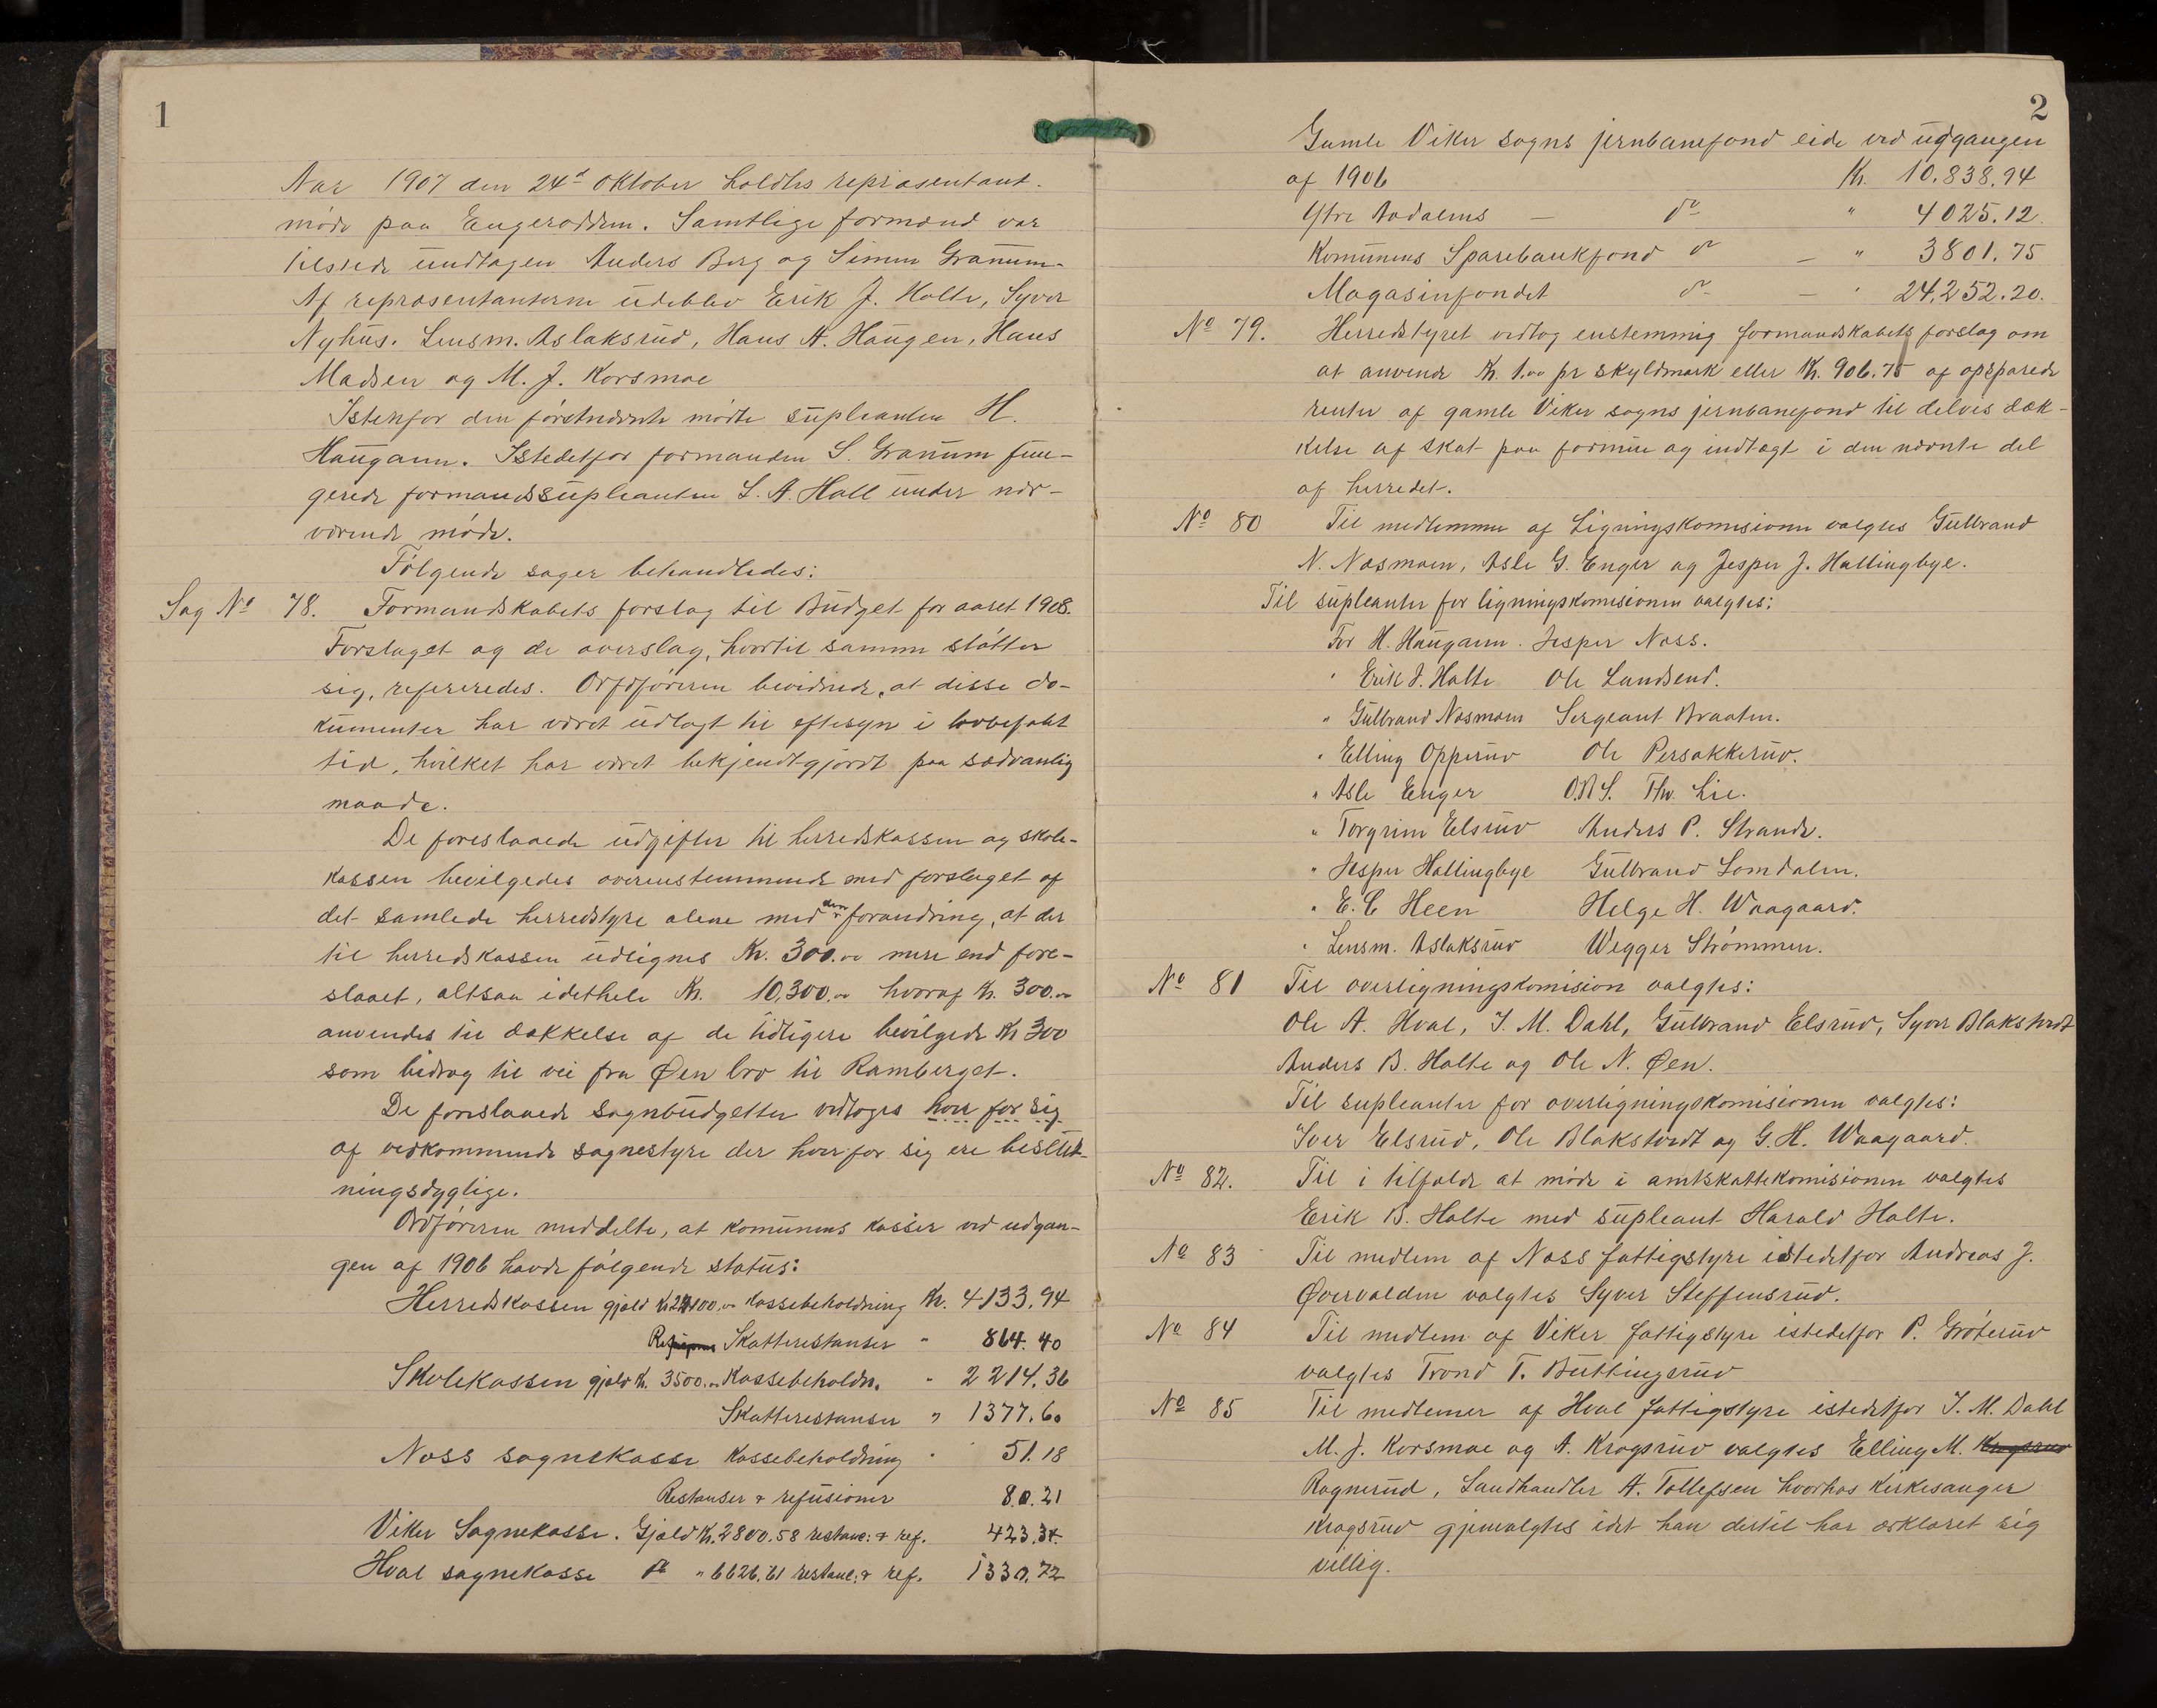 1
Aar 1907 den 24d Oktober holdtes repræsentant-
møde paa Engerodden. Samtlige formænd var
tilstede undtagen Anders Berg og Simen Granum.
Af repræsentanterne udeblev Erik J. Holte, Syver
Nyhus. Lensm. Aslaksrud, Hans A. Haugen, Hans
Madsen og M. J. Korsmoe
Istenfor den förstnævnte mødte supleanten H.
Haugann. Istedetfor formanden S. Granum fun-
gerede formandssupleanten L. A. Hall under nær-
værende møde.
Følgende sager behandledes:
Sag No 78. Formandskabets forslag til Budget for aaret 1908.
Forslaget og de overslag, hvortil samme støtter
sig, refereredes. Ordføreren bevidnede, at disse do-
kumenter har været udlagt til eftesyn i lovbefalt
tid, hvilket har været bekjendtgjordt paa sædvanlig
maade.
De foreslaaede udgifter til herredskassen og skole-
kassen bevilgedes overenstemmende med forslaget af
det samlede herredstyre alene med den forandring, at der
til herredskassen udlignes Kr. 300.00 mere end fore-
slaaet, altsaa idethele Kr. 10,300.00 hvoraf Kr. 300.00
anvendes til dækkelse af de tidligere bevilgede Kr 300
som bidrag til vei fra Øen bro til Ramberget.
De foreslaaede sognbudgetter vedtoges hver for sig
af vedkommende sognestyre der hver for sig ere beslut-
ningsdygtige.
Ordføreren meddelte, at komunens kasser ved udgan-
gen af 1906 havde følgende status:
Herredskassen gjæld Kassebeholdning Kr. 4133.94
Skatterestanser " 864.40
Skolekassen gjæld Kr. 3500.00 Kassebeholdn. " 2214.36
Skatterestanser " 1377.60
Næss sognekasse Kassebeholdning " 51.18
Restanser & refusioner 80.21
Viker Sognekasse. Gjæld Kr. 2800.58 restanc: & ref. 423.34
Hval sognekasse do " 6626.61 restanc: & ref. 1330.72
2
Gamle Viker sogns jernbanefond eide ved udgangen
af 1906 Kr. 10.838.94
Ytre Aadalens — do " 4025.12.
Komunens Sparebankfond do — " 3801.75
Magasinfondet do — " 24,252.20.
No 79. Herredstyret vedtog enstemmig formandskabets forslag om
at anvende Kr. 1.00 pr skyldmark eller Kr. 906.75 af opsparede
renter af gamle Viker sogns jernbanefond til delvis dæk-
kelse af skat paa formue og indtægt i den nævnte del
af herredet.
No 80 Til medlemmer af Ligningskomisionen valgtes Gulbrand
N. Næsmoen, Asle G. Enger og Jesper J. Hallingbye.
Til supleanter for ligningskomisionen valgtes:
For H. Haugann. Jesper Næss.
" Erik J. Holte Ole Landsend.
" Gulbrand Næsmoen Sergeant Braaten.
" Elling Opperud Ole Persakkerud.
" Asle Enger Thv. Lie.
" Torgrim Elsrud Anders P. Strande.
" Jesper Hallingbye Gulbrand Somdalen.
" E. C Heen Helge H. Waagaard.
" Lensm. Aslaksrud Wegger Strømmen.
No 81 Til overligningskomision valgtes:
Ole A. Hval, I. M. Dahl, Gulbrand Elsrud, Syver Blakstvedt
Anders B. Holte og Ole N. Øen.
Til supleanter for overligningskomisionen valgtes:
Iver Elsrud, Ole Blakstvedt og G. H. Waagaard.
No 82. Til i tilfælde at møde i amtskattekomisionen valgtes
Erik B. Holte med supleant Harald Holte.
No 83 Til medlem af Næss fattigstyre istedetfor Andreas J.
Øvervolden valgtes Syver Steffensrud.
No 84 Til medlem af Viker fattigstyre istedetfor P. Grøterud
valgtes Trond T. Buttingsrud
No 85 Til medlemer af Hval fattigstyre istedetfor I. M. Dahl
M. J. Korsmoe og A. Kragsrud valgtes Elling M. Kragsrud
Ragnerud, Landhandler A. Tollefsen hvorhos Kirkesanger
Kragsrud gjenvalgtes idet han dertil har erklæret sig
villig.